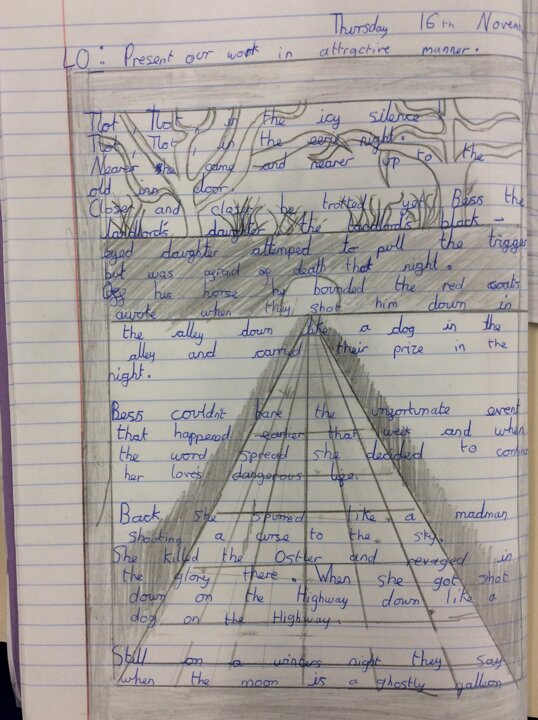 Thursday 16th Novem
LO: Present our work in attractive manner.
Tlot, Tlot, in the icy silence.
Tlot Tlot, in the eerie night.
Nearer he came and nearer up to the
old inn door.
Closer and closer he trotted yet Bess the
landlord's daughter the landlords black-
eyed daughter attemped to pull the trigger
but was afraid of death that night.
Off his horse he bounded the red coats
awoke when they shot him down in
the alley down like a dog in the
alley and carried their prize in the
night.
Bess couldn't bare the unfortunate event
that happened earlier that week and when
the word spread she decided to contin
her love's dangerous life.
Back she spurred like a madman
shouting a curse to the sky.
She killed the Ostler and revaged in
the glory there. When she got shot
down on the Highway down like a
dog on the Highway.
Still on a winters night they say
when the moon is a ghostly galleon